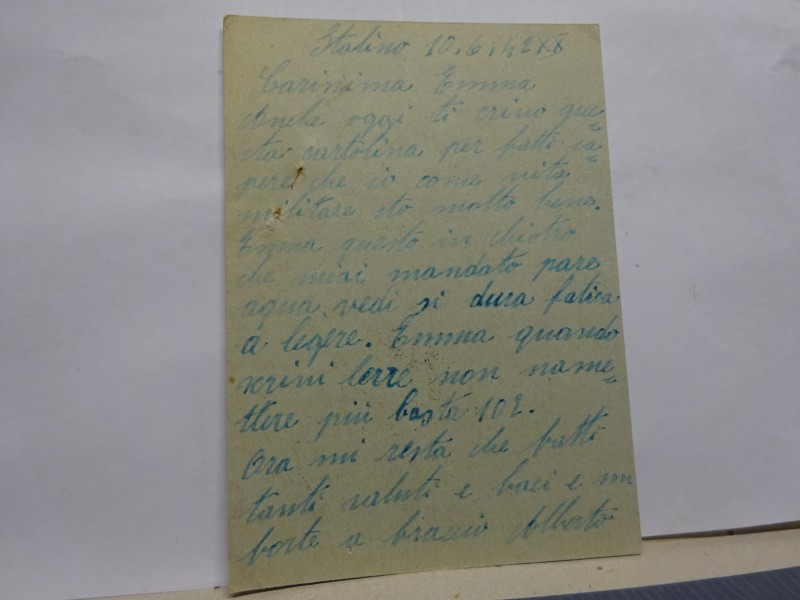 Stalino 10.6.42 XX
Carinima Emma
Anche oggi ti crino que=
sta cartolina per fatti sa=
pere che io come vita
militare sto molto bene.
Emma questo in chiotro
che miai mandato pare
aqua vedi si dura fatica
a legere. Emma quando
scrini lerre non name=
ttere più basta 102.
Ora mi resta che fatti
tanti saluti e baci e un
forte a braccio Alberto